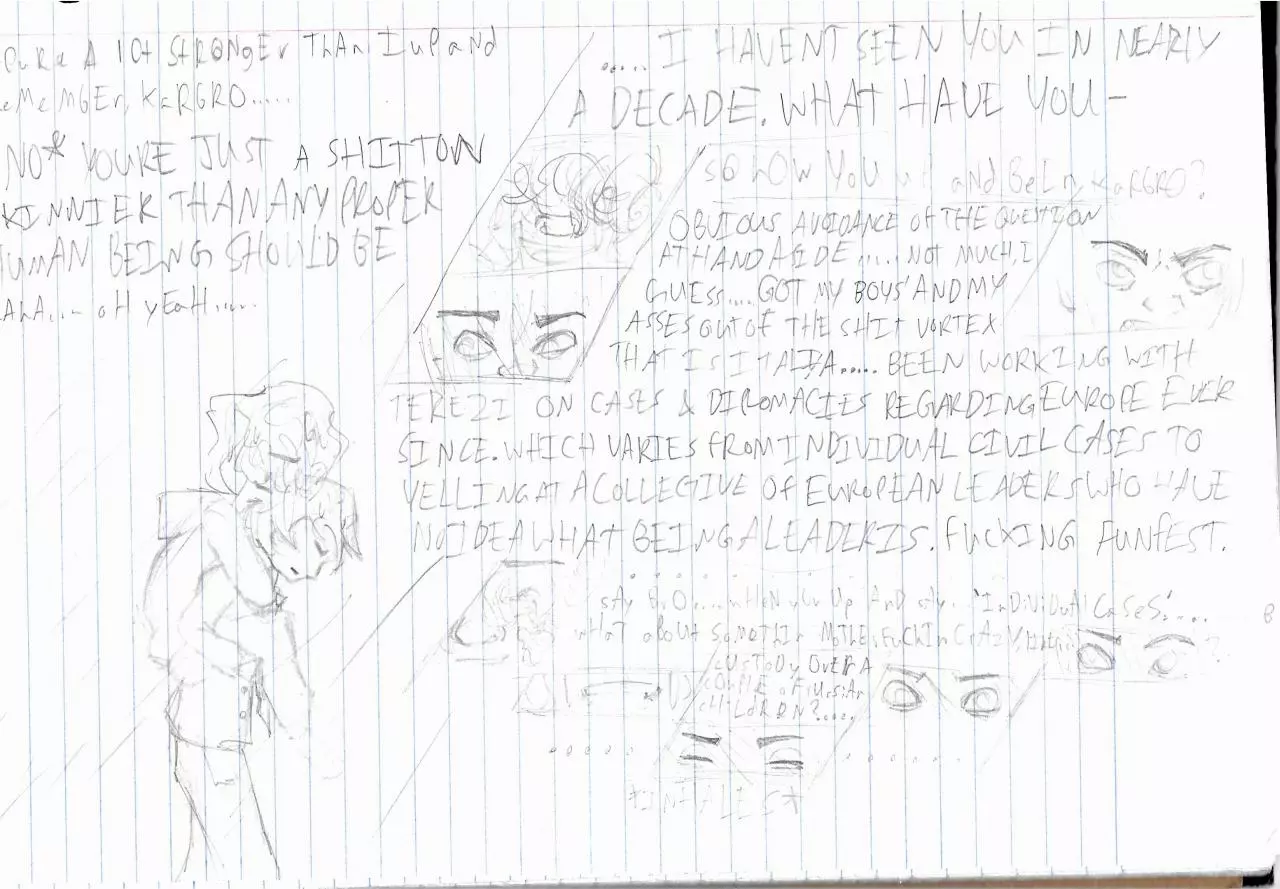 A lOt StRONgEr THAn I uP aNd
KaRGRO.....
NO* YOU'RE JUST A SHITTON
KINNIER THAN ANY PROPER
UMAN BEING SHOULD BE
AHA... oH yEaH.....
..... I HAVENT SEEN YOU IN NEARLY
A DECADE. WHAT HAVE YOU -
SO HOW YOU uP aNd BeEn, KaRGRO?
OBVIOUS AVOIDANCE Of THE QUESTION
AT HAND ASIDE..... NOT MUCH, I
GUESS.... GOT MY BOYS' AND MY
ASSES OUT OF THE SHIT VORTEX
THAT IS ITALIA..... BEEN WORKING WITH
TEREZI ON CASES & DIPLOMACIES REGARDING EUROPE EVER
SINCE. WHICH VARIES FROM INDIVIDUAL CIVIL CASES TO
YELLING AT A COLLECTIVE OF EUROPEAN LEADERS WHO HAVE
NO IDEA WHAT BEING A LEADER IS. FUCKING FUNFEST.
. . . . . . . . .
SAy BrO.... wHEN yOu Up AND sAy.. 'InDiViDuAl CaSeS'.....
wHaT aBouT SoMeTHIn MOTHErFuCKIn CrAZy, ?
CUSTODy OvEr A
COuPLE oF
CHiLdREN?....
. . . . . .
. . . . . . .
*INHALES*